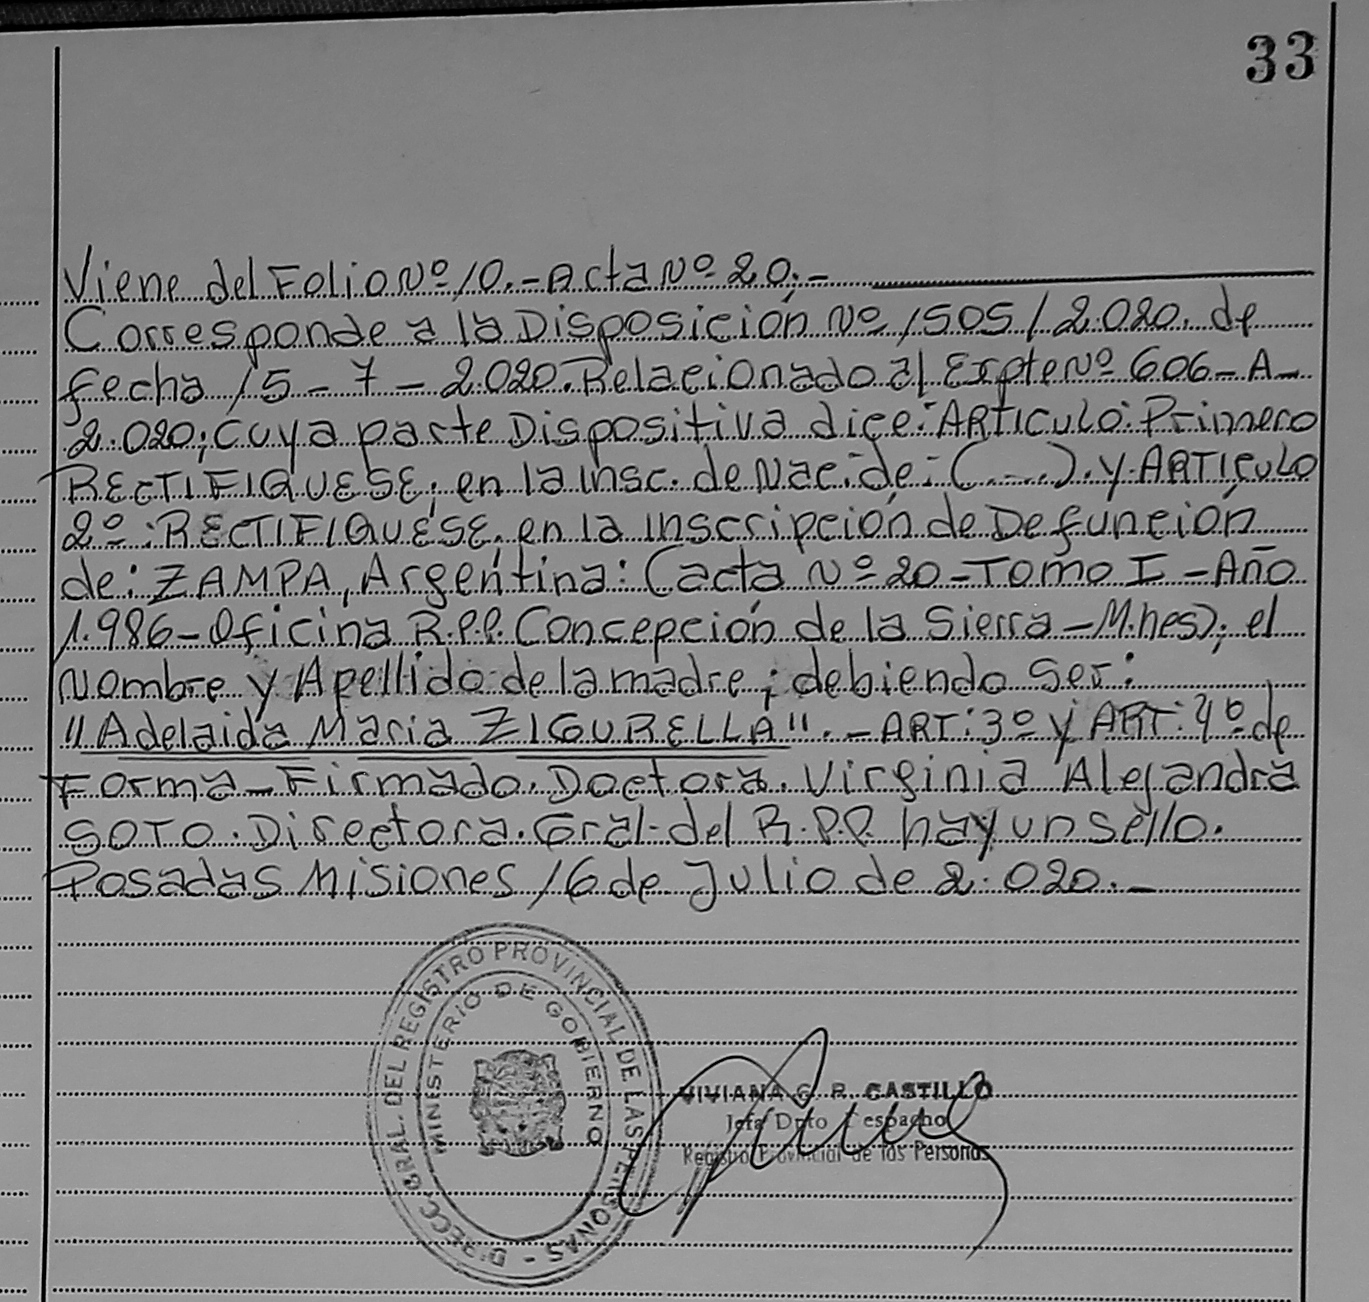 33
Viene del Folio Nº 10.- Acta Nº 20.-
Corresponde a la Disposición Nº 1505/2.020. de
fecha 15-7-2.020. Relacionado al Expte Nº 606-A-
2.020; cuya parte Dispositiva dice: ARTICULO: Primero
RECTIFIQUESE; en la insc. de Nac. de: (.....). Y ARTICULO
2º: RECTIFIQUESE, en la inscripción de Defunción
de: ZAMPA, Argentina: (acta Nº 20-Tomo I-Año
1.986-Oficina R.P.P. Concepción de la Sierra-M.nes); el
Nombre y Apellido de la madre; debiendo ser:
"Adelaida Maria ZIGURELLA".-ART: 3º y ART: 4º de
Forma-Firmado. Doctora. Virginia Alejandra
SOTO. Directora. Gral. del R.P.P. hay un sello.
Posadas Misiones 16 de Julio de 2.020.-
DIRECC. GRAL. DEL REGISTRO PROVINCIAL DE LAS PERSONAS -
MINISTERIO DE GOBIERNO
VIVIANA G. R. CASTILLO
Jefa Dpto espacho
Registro Provincial de las Personas